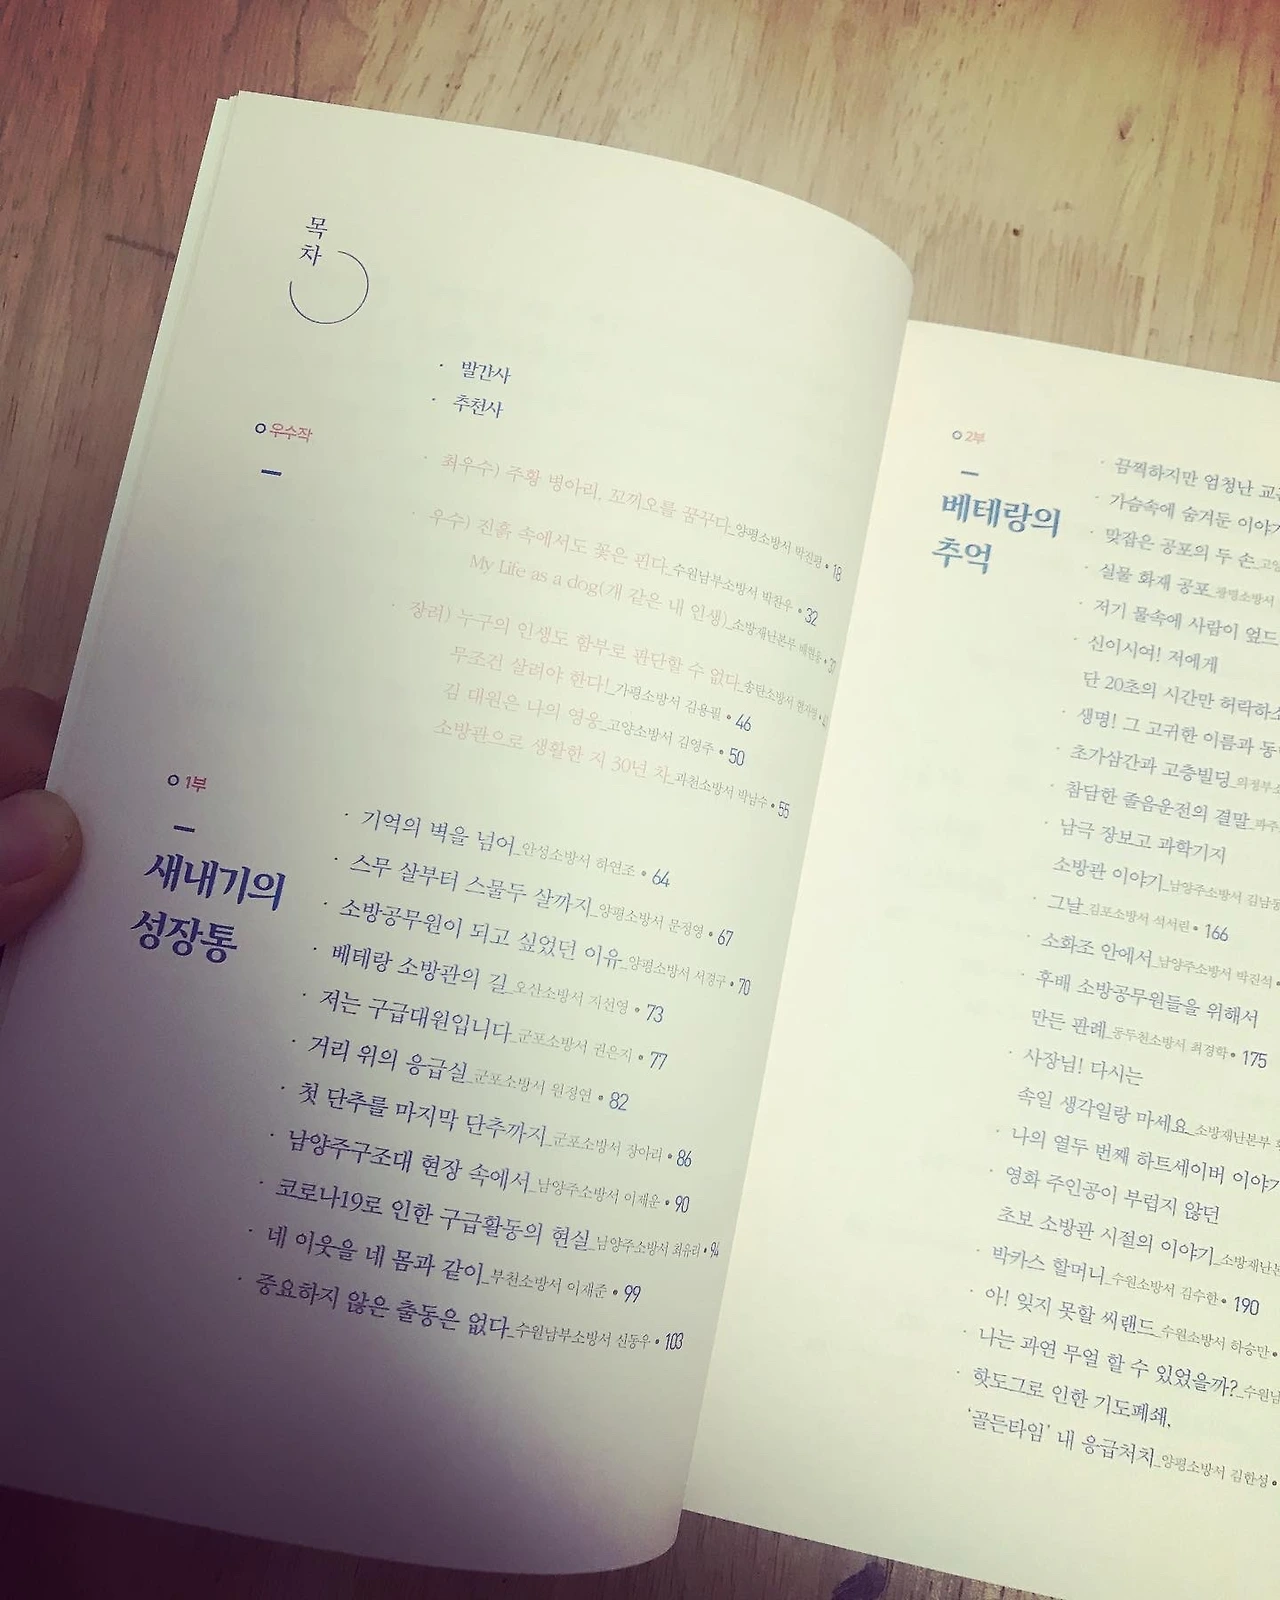 목
차
· 발간사
· 추천사
우수작
· 최우수) 주황 병아리, 꼬끼오를 꿈꾸다_양평소방서 박진평 • 18
· 우수) 진흙 속에서도 꽃은 핀다_수원남부소방서 박찬우 • 32
My Life as a dog(개 같은 내 인생)_소방재난본부
· 장려) 누구의 인생도 함부로 판단할 수 없다_송탄소방서
무조건 살려야 한다!_가평소방서 김용필 • 46
김 대원은 나의 영웅_고양소방서 김영주 • 50
소방관으로 생활한 지 30년 차_과천소방서 박남수 • 55
1부
새내기의
성장통
· 기억의 벽을 넘어_안성소방서 하연조 • 64
· 스무 살부터 스물두 살까지_양평소방서 문정영 • 67
· 소방공무원이 되고 싶었던 이유_양평소방서 서경구 • 70
· 베테랑 소방관의 길_오산소방서 지선영 • 73
· 저는 구급대원입니다_군포소방서 권은지 • 77
· 거리 위의 응급실_군포소방서 원정연 • 82
· 첫 단추를 마지막 단추까지_군포소방서 장아라 • 86
· 남양주구조대 현장 속에서_남양주소방서 이재운 • 90
· 코로나19로 인한 구급활동의 현실_남양주소방서 최유리 • 94
· 네 이웃을 네 몸과 같이_부천소방서 이재준 • 99
· 중요하지 않은 출동은 없다_수원남부소방서 신동우 • 103
2부
베테랑의
추억
· 끔찍하지만 엄청난
· 가슴속에 숨겨둔 이야기
· 맞잡은 공포의 두 손
· 실물 화재 공포_광명소방서
· 저기 물속에 사람이
· 신이시여! 저에게
단 20초의 시간만
· 생명! 그 고귀한 이름과
· 초가삼간과 고층빌딩
· 참담한 졸음운전의 결말
· 남극 장보고 과학기지
소방관 이야기_남양주소방서 김남
· 그날_김포소방서 석서린 • 166
· 소화조 안에서_남양주소방서 박진석 •
· 후배 소방공무원들을 위해서
만든 판례_동두천소방서 최경학 • 175
· 사장님! 다시는
속일 생각일랑 마세요_소방재난본부
· 나의 열두 번째 하트세이버
· 영화 주인공이 부럽지 않던
초보 소방관 시절의 이야기
· 박카스 할머니_수원소방서 김수한 • 190
· 아! 잊지 못할 씨랜드_수원소방서 하승만 •
· 나는 과연 무얼 할 수 있었을까?
· 핫도그로 인한 기도폐쇄,
'골든타임' 내 응급처치_양평소방서 김한성 •